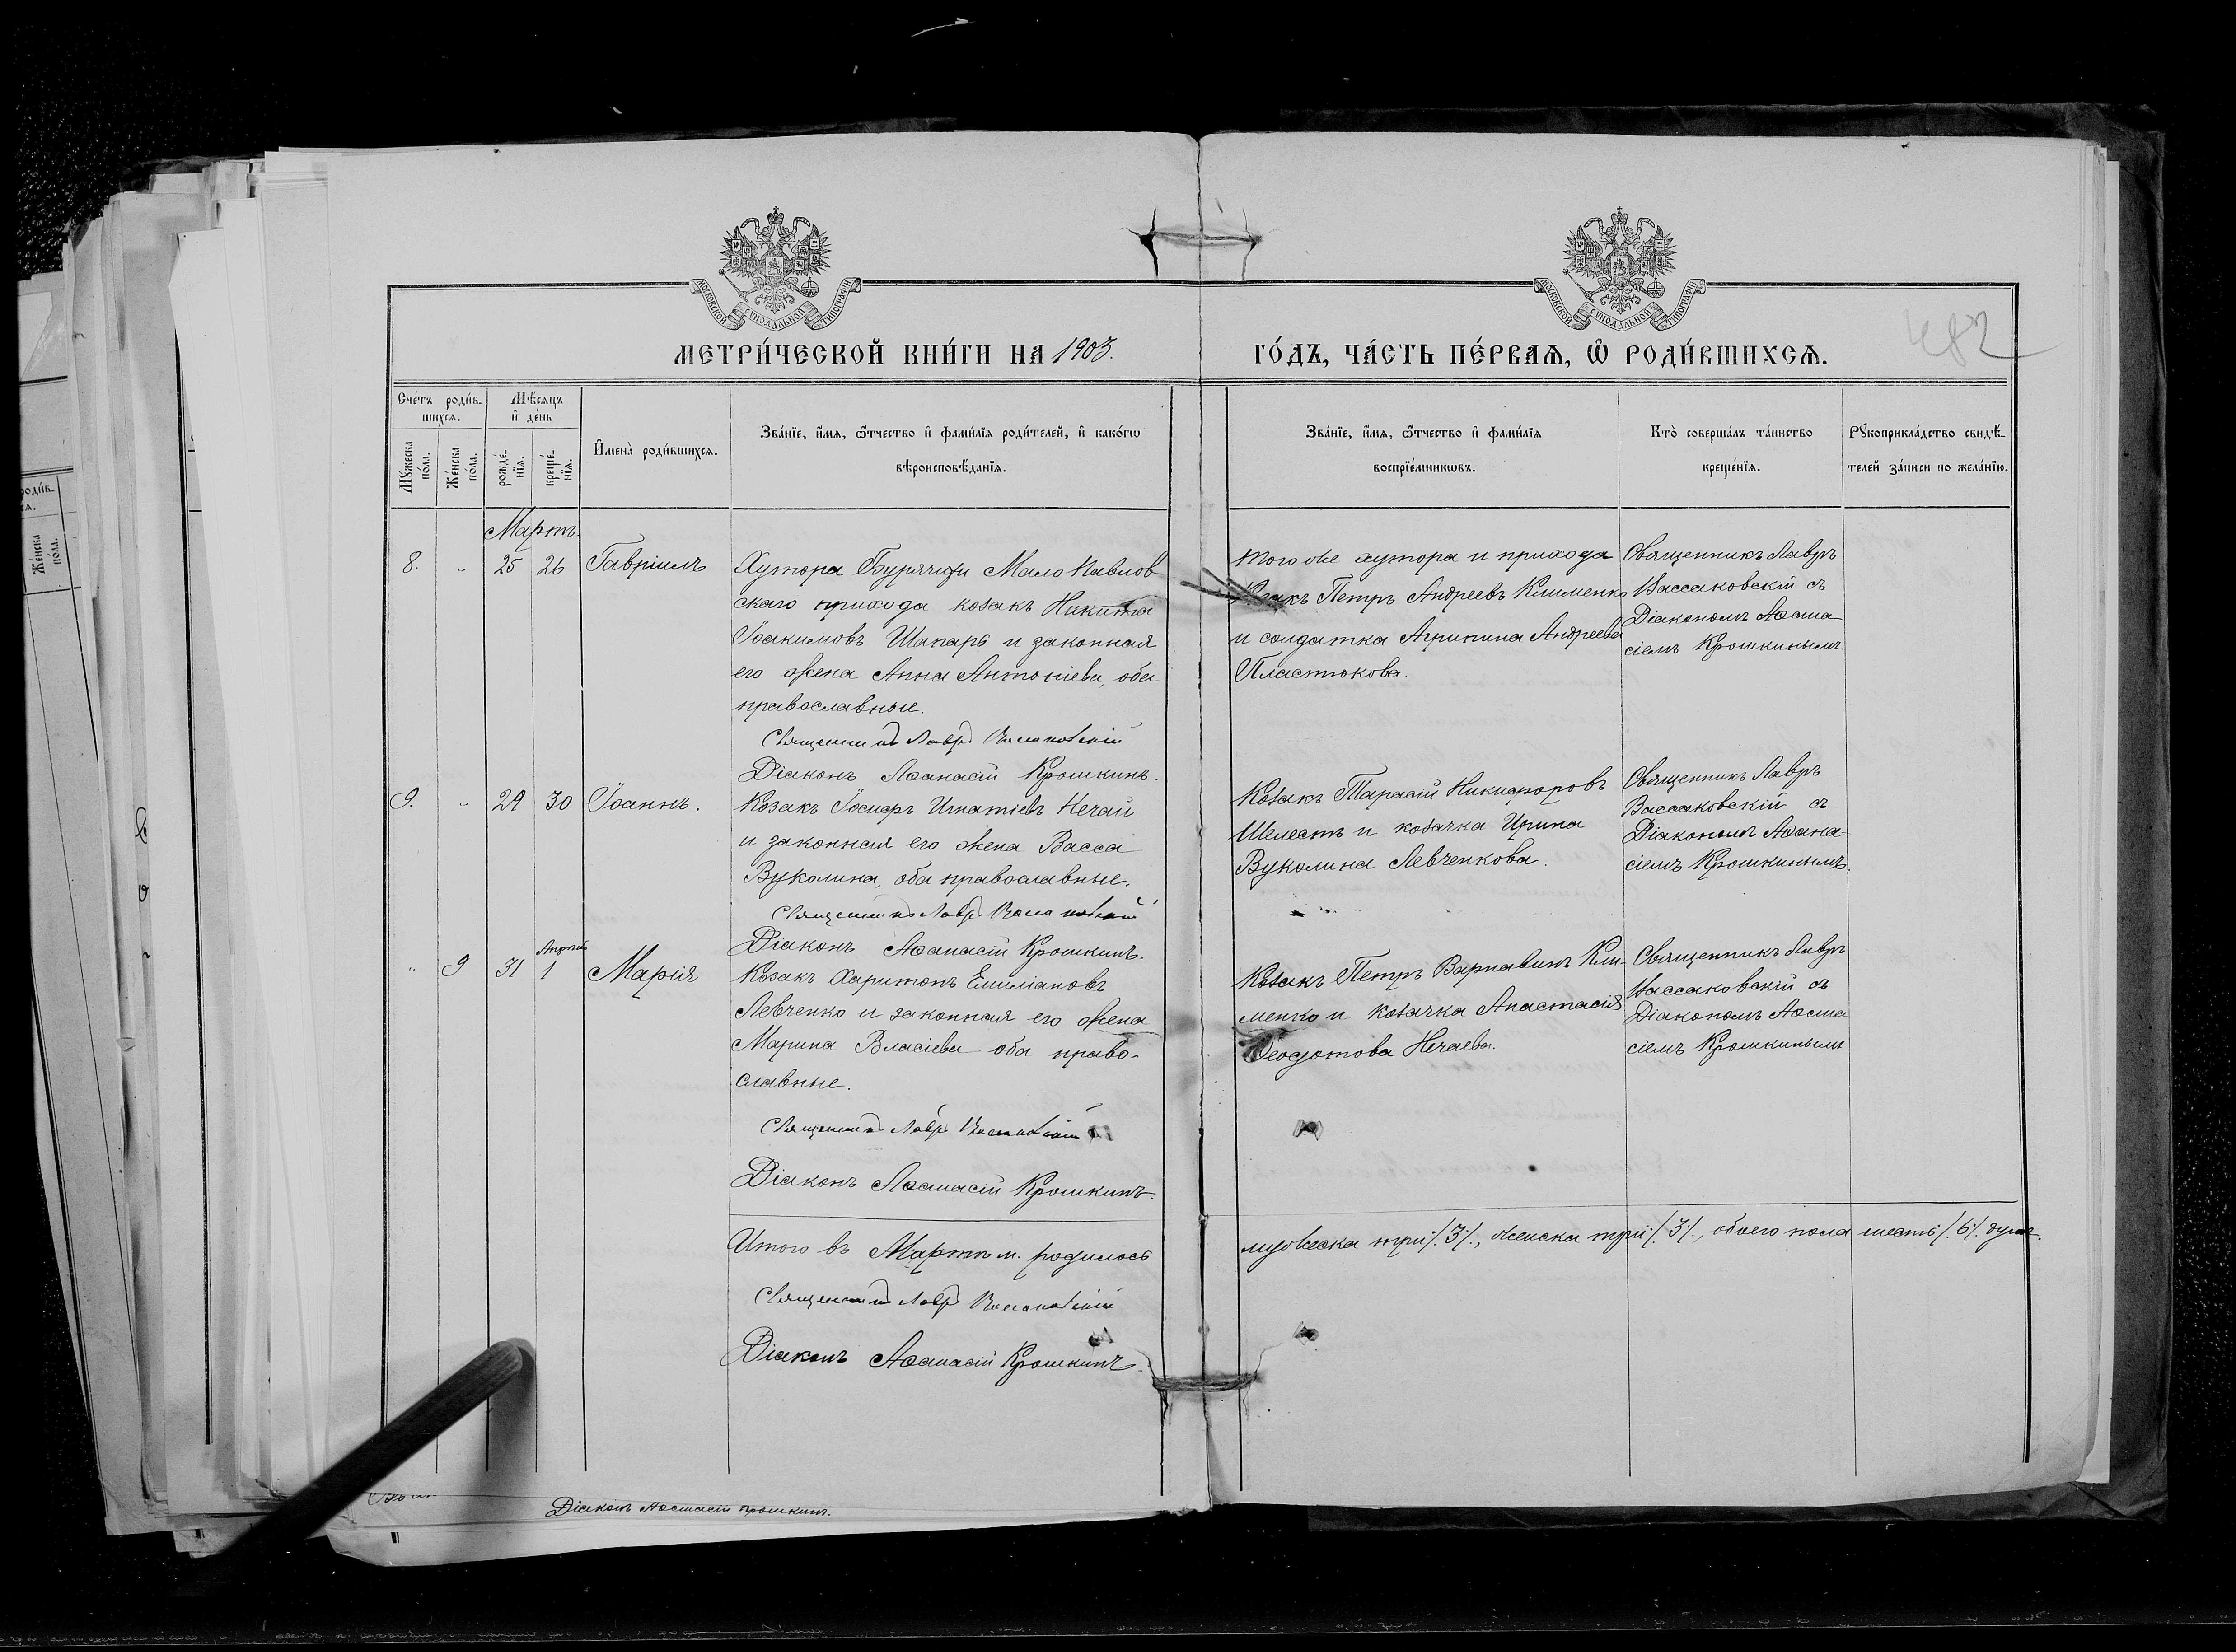 МОСКОВСКОЙ СУНОДАЛЬНОЙ ТИПОГРАФІИ
МОСКОВСКОЙ СУНОДАЛЬНОЙ ТИПОГРАФІИ
МЕТРИ́ЧЕСКОЙ КНИ́ГИ НА 1903.
ГО́ДЪ, ЧА́СТЬ ПЕ́РВАѦ, Ѡ҆ РОДИ́ВШИХСѦ.
482
Сче́тъ роди́в-
шихсѧ.
Мѣ́сѧцъ
и҆ де́нь
Мꙋ́жеска по́ла.
Же́нска по́ла.
рожде́-
нїѧ.
креще́-
нїѧ.
И҆мена̀ роди́вшихсѧ.
Зва́нїе, и҆́мѧ, ѻ҆́тчество и҆ фами́лїѧ роди́телей, и҆ како́гѡ
вѣроисповѣ́данїѧ.
Зва́нїе, и҆́мѧ, ѻ҆́тчество и҆ фами́лїѧ
воспрїе́мникѡвъ.
Кто̀ соверша́лъ та́инство
креще́нїѧ.
Рꙋкоприкла́дство свидѣ́-
телей за́писи по жела́нїю.
Мартъ.
8. " 25 26 Гавріилъ
Хутора Бурячифи Мало Павлов
скаго прихода козакъ Никита
Іоакимовъ Шапарь и законная
его жена Анна Антоніева, оба
православные.
Священникъ Лавръ Вассаковскій
Діаконъ Аѳанасій Крошкинъ.
того же хутора и прихода
Козакъ Петръ Андреевъ Клименко
и солдатка Агрипина Андреева
Пластюкова.
Священникъ Лавръ
Вассаковскій съ
Діакономъ Аѳана
сіемъ Крошкинымъ.
9. " 29 30 Іоаннъ.
Козакъ Іосифъ Игнатіевъ Нечай
и законная его жена Васса
Вуколина, оба православные.
Священникъ Лавръ Вассаковскій
Діаконъ Аѳанасій Крошкинъ.
Козакъ Тарасій Никифоровъ
Шелестъ и козачка Ирина
Вуколина Левченкова.
Священникъ Лавръ
Вассаковскій съ
Діакономъ Аѳана
сіемъ Крошкинымъ.
Апрѣль
" 9 31 1 Марія
Козакъ Харитонъ Емиліановъ
Левченко и законная его жена
Марина Власіева оба право-
славные.
Священникъ Лавръ Вассаковскій
Діаконъ Аѳанасій Крошкинъ.
Козакъ Петръ Варнавинъ Кли-
менко и козачка Анастасія
Ѳеодотова Нечаева.
Священникъ Лавръ
Вассаковскій съ
Діакономъ Аѳана
сіемъ Крошкинымъ
Итого въ Мартѣ м. родилось
мужеска три /.3/., женска три /.3/., обоего пола шесть /.6/. душъ.
Священникъ Лавръ Вассаковскій
Діаконъ Аѳанасій Крошкинъ.
Діаконъ Аѳанасій Крошкинъ.